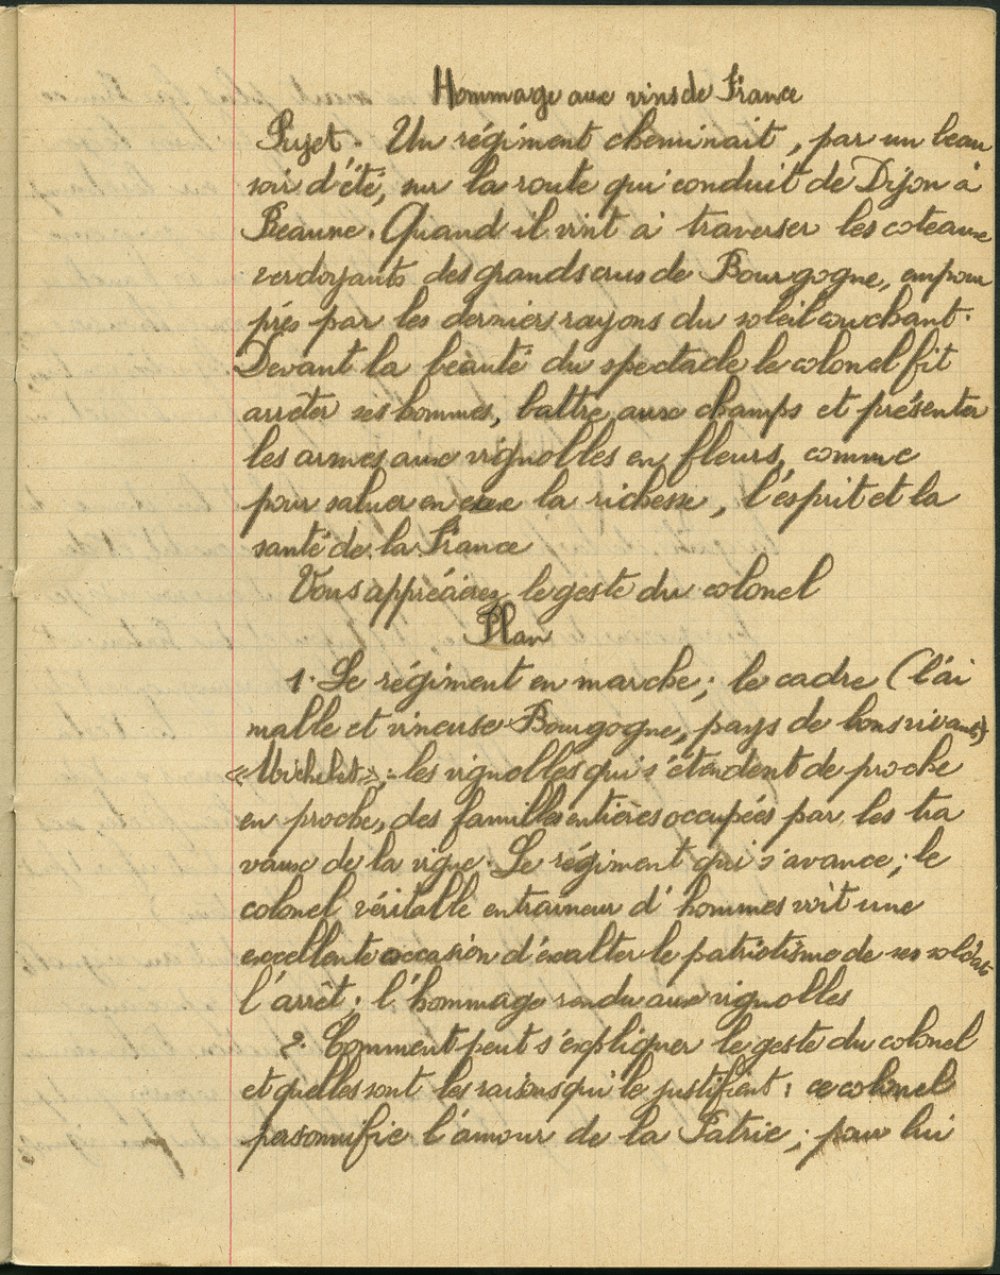 Hommage aux vins de France
Sujet. Un régiment cheminait, par un beau
soir d'été, sur la route qui conduit de Dijon à
Beaune. Quand il vint à traverser les coteaux
verdoyants des grands crus de Bourgogne, empour
prés par les derniers rayons du soleil couchant.
Devant la beauté du spectacle le colonel fit
arrêter ses hommes, battre aux champs et présenter
les armes aux vignolles en fleurs, comme
pour saluer en eux la richesse, l'esprit et la
santé de la France
Vous apprécierez le geste du colonel
Plan
1. Le régiment en marche; le cadre (l'ai
mable et vineuse Bourgogne, pays de bons vivants)
«Michelet»; les vignolles qui s'étendent de proche
en proche, des familles entières occupées par les tra
vaux de la vigne. Le régiment qui s'avance; le
colonel véritable entraineur d'hommes voit une
excellente occasion d'exalter le patriotisme de ses soldats
l'arrêt; l'hommage rendu aux vignolles
2. Comment peut s'expliquer le geste du colonel
et quelles sont les raisons qui le justifient: ce colonel
personnifie l'amour de la Patrie; pour lui